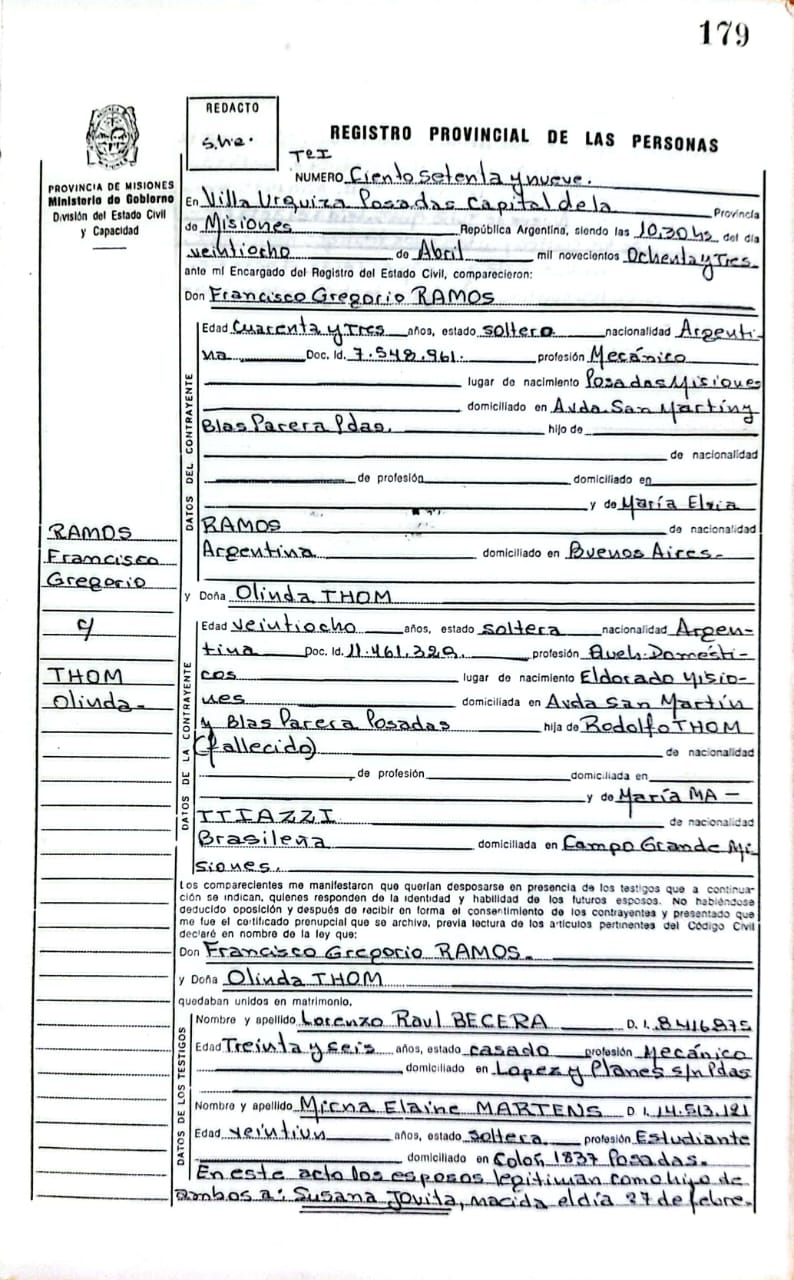 179
REDACTO
REGISTRO PROVINCIAL DE LAS PERSONAS
TºI
NUMERO Ciento setenta y nueve.
PROVINCIA DE MISIONES
Ministerio de Gobierno
División del Estado Civil
y Capacidad
En Villa Urquiza Posadas Capital de la Provincia
de Misiones República Argentina, siendo las 10,30 hs del día
veintiocho de Abril mil novecientos Ochenta y Tres
ante mí Encargado del Registro del Estado Civil, comparecieron:
Don Francisco Gregorio RAMOS
DATOS DEL CONTRAYENTE
Edad Cuarenta y Tres años, estado soltero nacionalidad Argenti-
na Doc. Id. 7.548.961. profesión Mecánico
lugar de nacimiento Posadas Misiones
domiciliado en Avda. San Martín y
Blas Parera Pdas. hijo de
de nacionalidad
de profesión domiciliado en
y de María Elvia
RAMOS de nacionalidad
Argentina domiciliado en Buenos Aires-
RAMOS
Francisco
Gregorio
c/
THOM
Olinda-
y Doña Olinda THOM
DATOS DE LA CONTRAYENTE
Edad veintiocho años, estado soltera nacionalidad Argen-
tina Doc. Id. 11.461.329. profesión Queh. Domésti-
cos lugar de nacimiento Eldorado Misio-
nes domiciliada en Avda San Martín
y Blas Parera Posadas hija de Rodolfo THOM
(fallecido) de nacionalidad
de profesión domiciliada en
y de María MA-
TTIAZZI de nacionalidad
Brasileña domiciliada en Campo Grande Mi-
siones.
Los comparecientes me manifestaron que querían desposarse en presencia de los testigos que a continua-
ción se indican, quienes responden de la identidad y habilidad de los futuros esposos. No habiéndose
deducido oposición y después de recibir en forma el consentimiento de los contrayentes y presentado que
me fue el certificado prenupcial que se archiva, previa lectura de los artículos pertinentes del Código Civil
declaré en nombre de la ley que:
Don Francisco Gregorio RAMOS.
y Doña Olinda THOM
quedaban unidos en matrimonio.
DATOS DE LOS TESTIGOS
Nombre y apellido Lorenzo Raul BECERA D. I. 8416875
Edad Treinta y seis años, estado casado profesión Mecánico
domiciliado en Lopez y Planes s/n Pdas
Nombre y apellido Mirna Elaine MARTENS D. I. 14.513.121
Edad veintiun años, estado soltera profesión Estudiante
domiciliado en Colón 1837 Posadas.
En este acto los esposos legitiman como hijo de
ambos a: Susana Jovita, nacida el día 27 de febre-